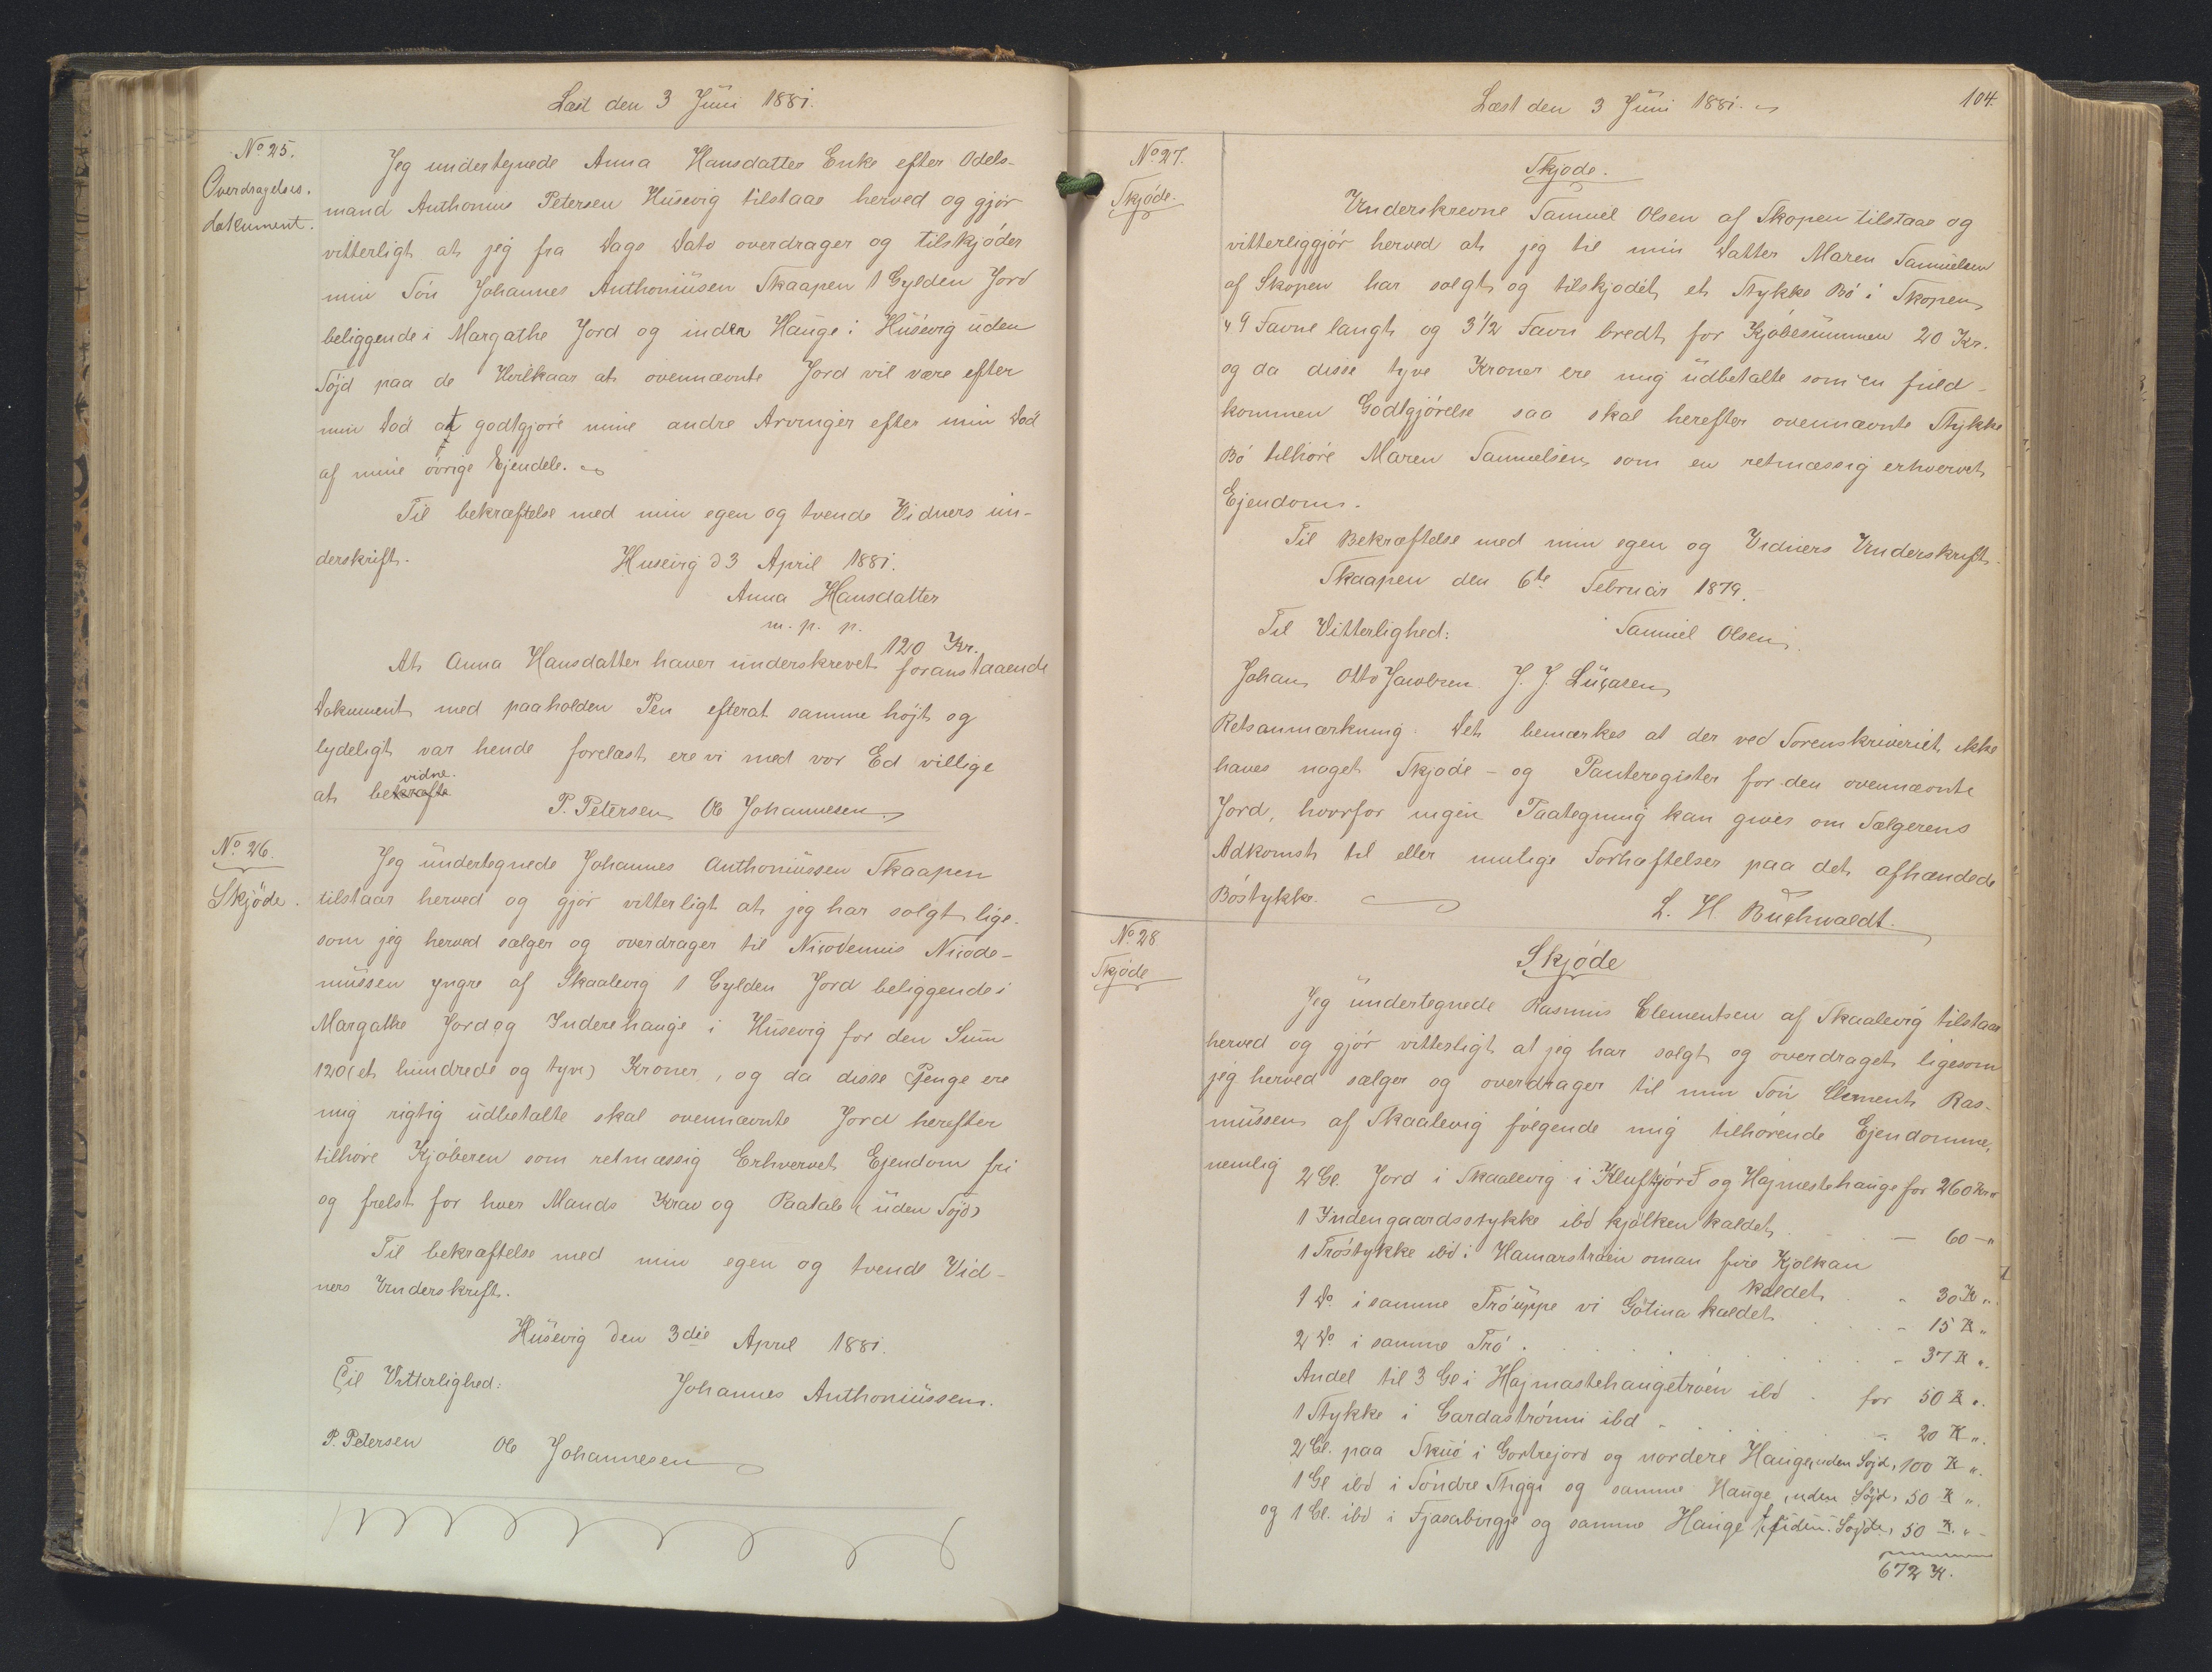 Læst den 3 Juni 1881.
No 25.
Overdragelses.
dokument.
Jeg undertegnede Anna Hansdatter Enke efter Odels-
mand Anthonius Petersen Husevig tilstaar herved og gjør
vitterligt at jeg fra Dags Dato overdrager og tilskjøder
min Søn Johannes Anthoniusen Skaapen 1 Gylden Jord
beliggende i Margathe Jord og inder Hauge i Husevig uden
Søjd paa de Vvilkaar at ovennævnte Jord vil være efter
min Død at godtgjøre mine andre Arvinger efter min Død
af mine øvrige Ejendele.
Til bekræftelse med min egen og tvende Vidners un-
derskrift.
Husevig d 3 April 1881.
Anna Hansdatter
m. p. p.
120 Kr.
At Anna Hansdatter haver underskrevet foranstaaende
Dokument med paaholden Pen efterat samme højt og
lydeligt var hende forelæst, ere vi med vor Ed villige
vidne.
at bekræfte
P. Petersen Ole Johannesen
No 26.
Skjøde.
Jeg undertegnede Johannes Anthoniussen Skaapen
tilstaar herved og gjør vitterligt at jeg har solgt lige-
som jeg herved sælger og overdrager til Nicodemus Nicode-
mussen yngre af Skaalevig 1 Gylden Jord beliggende i
Margathe Jord og Inderehauge i Husevig for den Sum
120 (et hundrede og tyve) Kroner, og da disse Penge ere
mig rigtig udbetalte skal ovennævnte Jord herefter
tilhøre Kjøberen som retmæssig Erhvervet Ejendom fri
og frelst for hver Mands Krav og Paatale (uden Søjd)
Til bekræftelse med min egen og tvende Vid-
ners Underskrift.
Husevig den 3die April 1881.
Til Vitterlighed:
Johannes Anthoniussen.
P. Petersen Ole Johannesen
Læst den 3 Juni 1881.
104.
No 27.
Skjøde.
Skjøde.
Underskrevne Samuel Olsen af Skopen tilstaar og
vitterliggjør herved at jeg til min Datter Maren Samuelsen
af Skopen har solgt og tilskjødet et Stykke Bø i Skopen
49 Favne langt og 3 1/2 Favn bredt for Kjøbesummen 20 Kr.
og da disse tyve Kroner ere mig udbetalte som en fuld-
kommen Godtgjørelse saa skal herefter ovennævnte Stykke
Bø tilhøre Maren Samuelsen som en retmæssig erhvervet
Ejendom.
Til Bekræftelse med min egen og Vidners Underskrift.
Skaapen den 6te Februar 1879.
Til Vitterlighed:
Samuel Olsen.
Johan Otto Jacobsen. J. J. Lücasen
Retsanmærkning. Det bemærkes at der ved Sorenskriveriet ikke
haves noget Skjøde- og Panteregister for den ovennævnte
Jord, hvorfor ingen Paategning kan gives om Sælgerens
Adkomst til eller mulige Forhæftelser paa det afhændede
Bøstykke.
L. H. Buchwaldt.
No 28
Skjøde
Skjøde
Jeg undertegnede Rasmus Clementsen af Skaalevig tilstaar
herved og gjør vitterligt at jeg har solgt og overdraget ligesom
jeg herved sælger og overdrager til min Søn Clement Ras-
mussen af Skaalevig følgende mig tilhørende Ejendomme,
nemlig
2 Gl. Jord i Skaalevig i Kluftjørd og Højmestehauge for 260 Kr "
1 Indengaardsstykke ibd kjølken kaldet — 60 — "
1 Trøstykke ibd i Hamarstrøen oman fire Kjølkan
kaldet - 30 K ".
1 Do. i samme Trø uppe vi Gøtina kaldet - 15 K "
2 Do. i samme Trø - 37 K ".
Andel til 3 Gl i Højmastehaugetrøen ibd for 50 K ".
1 Stykke i Gardastrønni ibd - 20 K ".
2 Gl. paa Skuø i Gortrejord og nordere Hauge, uden Søjd, 100 K ".
1 Gl ibd i Søndre Stiggi og samme Hauge, uden Søjd, 50 K ".
og 1 Gl. ibd i Fjasabirgje og samme Hauge, uden Søjde, 50 K. "
672 K.